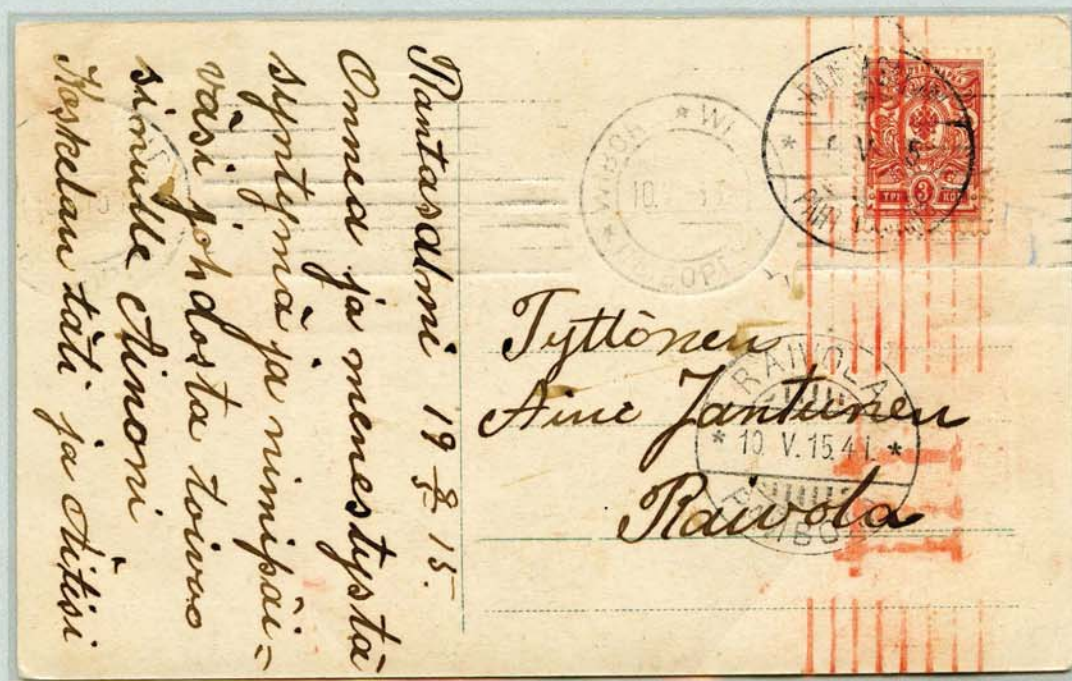 Rantasalmi 19 9/5 15.
Onnea ja menestystä
syntymä ja nimipäi=
väsi johdosta toivoo
sinulle Ainoni
Koskelan täti ja Äitisi
Tyttönen
Aine Jantunen
Raivola
* WIBORG * WI
10.
RAIVOLA
* 10. V. 15. 4 I. *
ТРИ 3 КОП